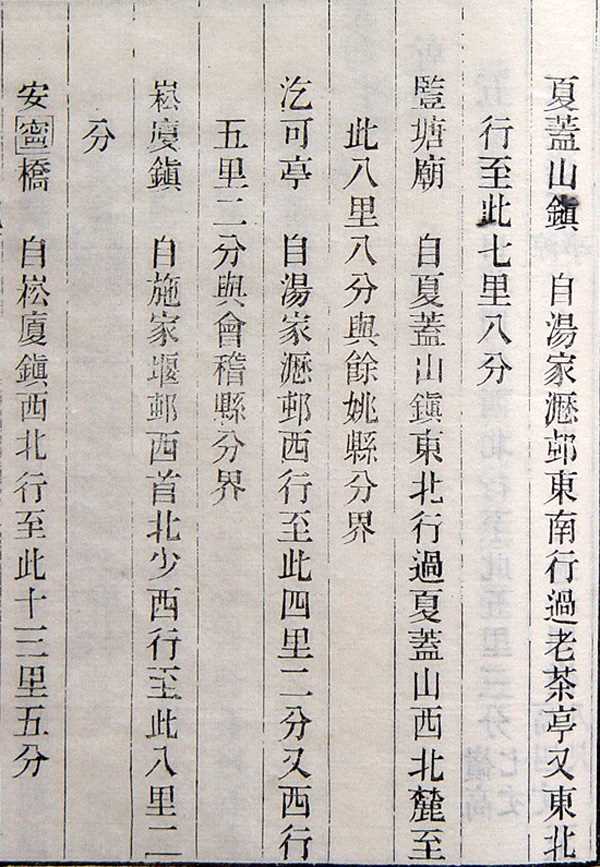 夏蓋山鎮　自湯家瀝邨東南行過老茶亭又東北
行至此七里八分
瓽塘廟　自夏蓋山鎮東北行過夏蓋山西北麓至
此八里八分與餘姚縣分界
汔可亭　自湯家瀝邨西行至此四里二分又西行
五里二分與會稽縣分界
崧廈鎮　自施家堰邨西首北少西行至此八里二
分
安寍橋　自崧廈鎮西北行至此十三里五分